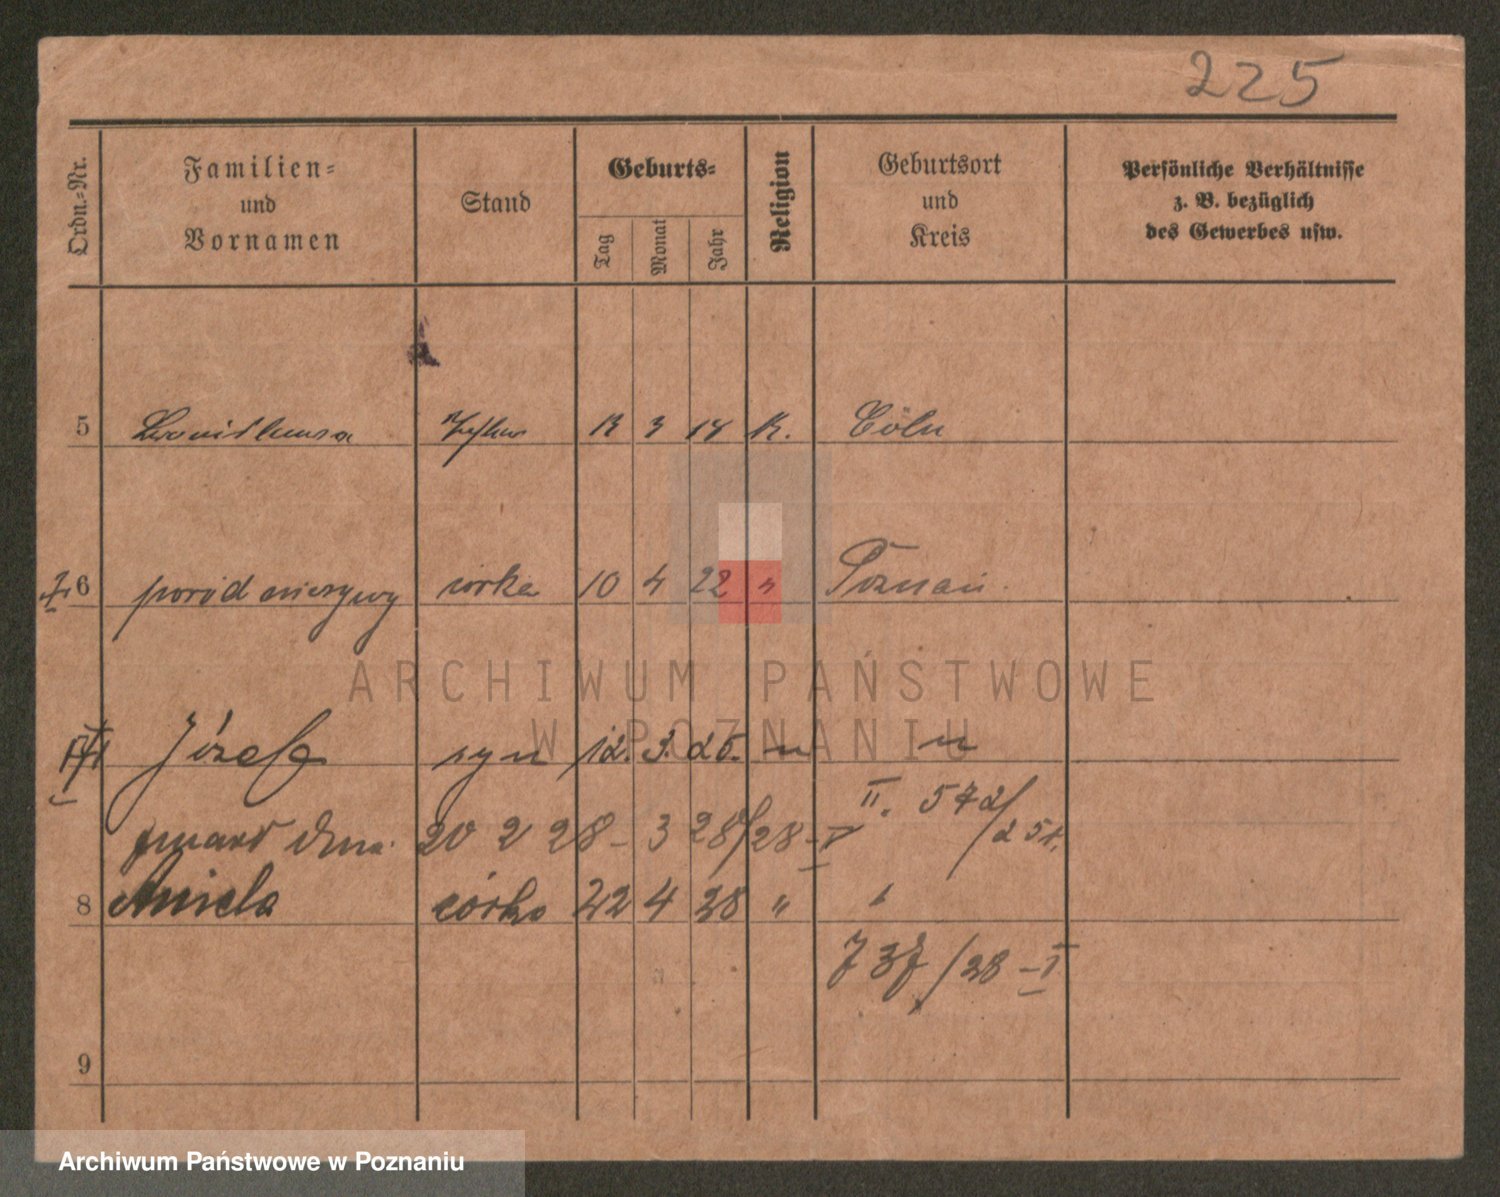 225
Ordn.=Nr.
Familien=
und
Vornamen
Stand
Geburts=
Tag
Monat
Jahr
Religion
Geburtsort
und
Kreis
Persönliche Verhältnisse
z. B. bezüglich
des Gewerbes usw.
5 3 14 K. Cöln
6 poród nieżywy córka 10 4 22 " Poznań
Józef syn 12. 3. 25. " "
zmarł dnia 20 2 28 - 3 28/28 - V II. 572/25 r.
8 Aniela córka 22 4 28 " "
737/28 - I
9
ARCHIWUM PAŃSTWOWE
W POZNANIU
Archiwum Państwowe w Poznaniu